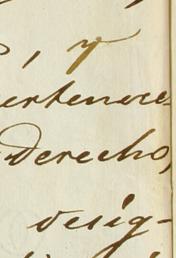 , y
ertenece
derecho,
desig-